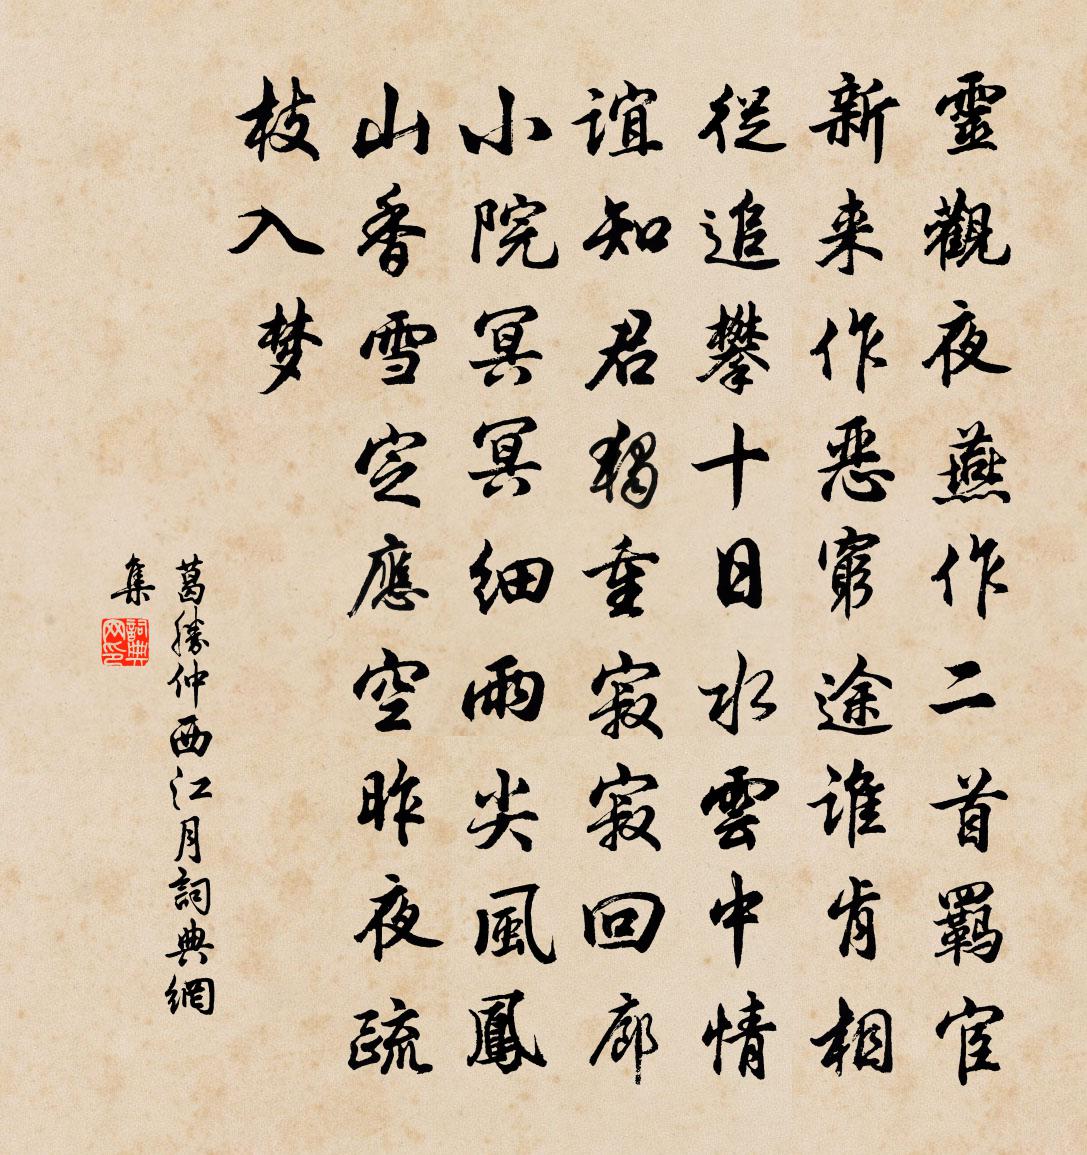 靈觀夜燕作二首羁宦
新来作惡窮途谁肯相
從追攀十日水雲中情
誼知君獨重寂寂回廊
小院冥冥細雨尖風鳳
山香雪定應空昨夜疏
枝入梦
葛勝仲西江月詞典網
集
詞典網印